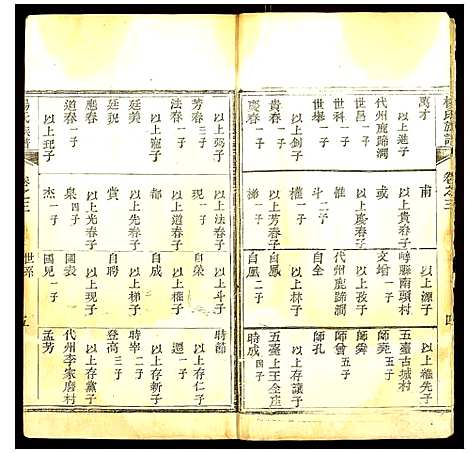 楊氏族譜
卷之三
四
萬才
以上進子
代州鹿蹄澗
世昌 一子
世科 一子
世舉
以上貴子
貴春 一子
慶春 一子
甫
以上貴春子
或 一子
以上慶春子
斗 二子
林 一子
以上芳春子
梯 一子
以上源子
崞縣南頭村
文增 一子
以上孜子
代州鹿蹄澗
自全
以上林子
自鳳 二子
以上維先子
五臺古城村
師堯 五子
師舜
師曾 五子
師孔
以上存讓子
五臺上王全庄
時成 四子
芳春 三子
以上弼子
法春 一子
以上寵子
廷美
廷貌
應春 一子
道春 一子
以上玘子
現 一子
以上法春子
權 一子
以上道春子
賞
以上應春子
泉 二子
以上光春子
杰 一子
以上斗子
自榮
以上權子
自成
以上梯子
自聘
以上現子
國表
國兒 一子
時節
以上存仁子
還 一子
以上存新子
時率 二子
登高 三子
以上存黨子
代州李家磨村
孟芳
楊氏族譜
卷之三
世系
五